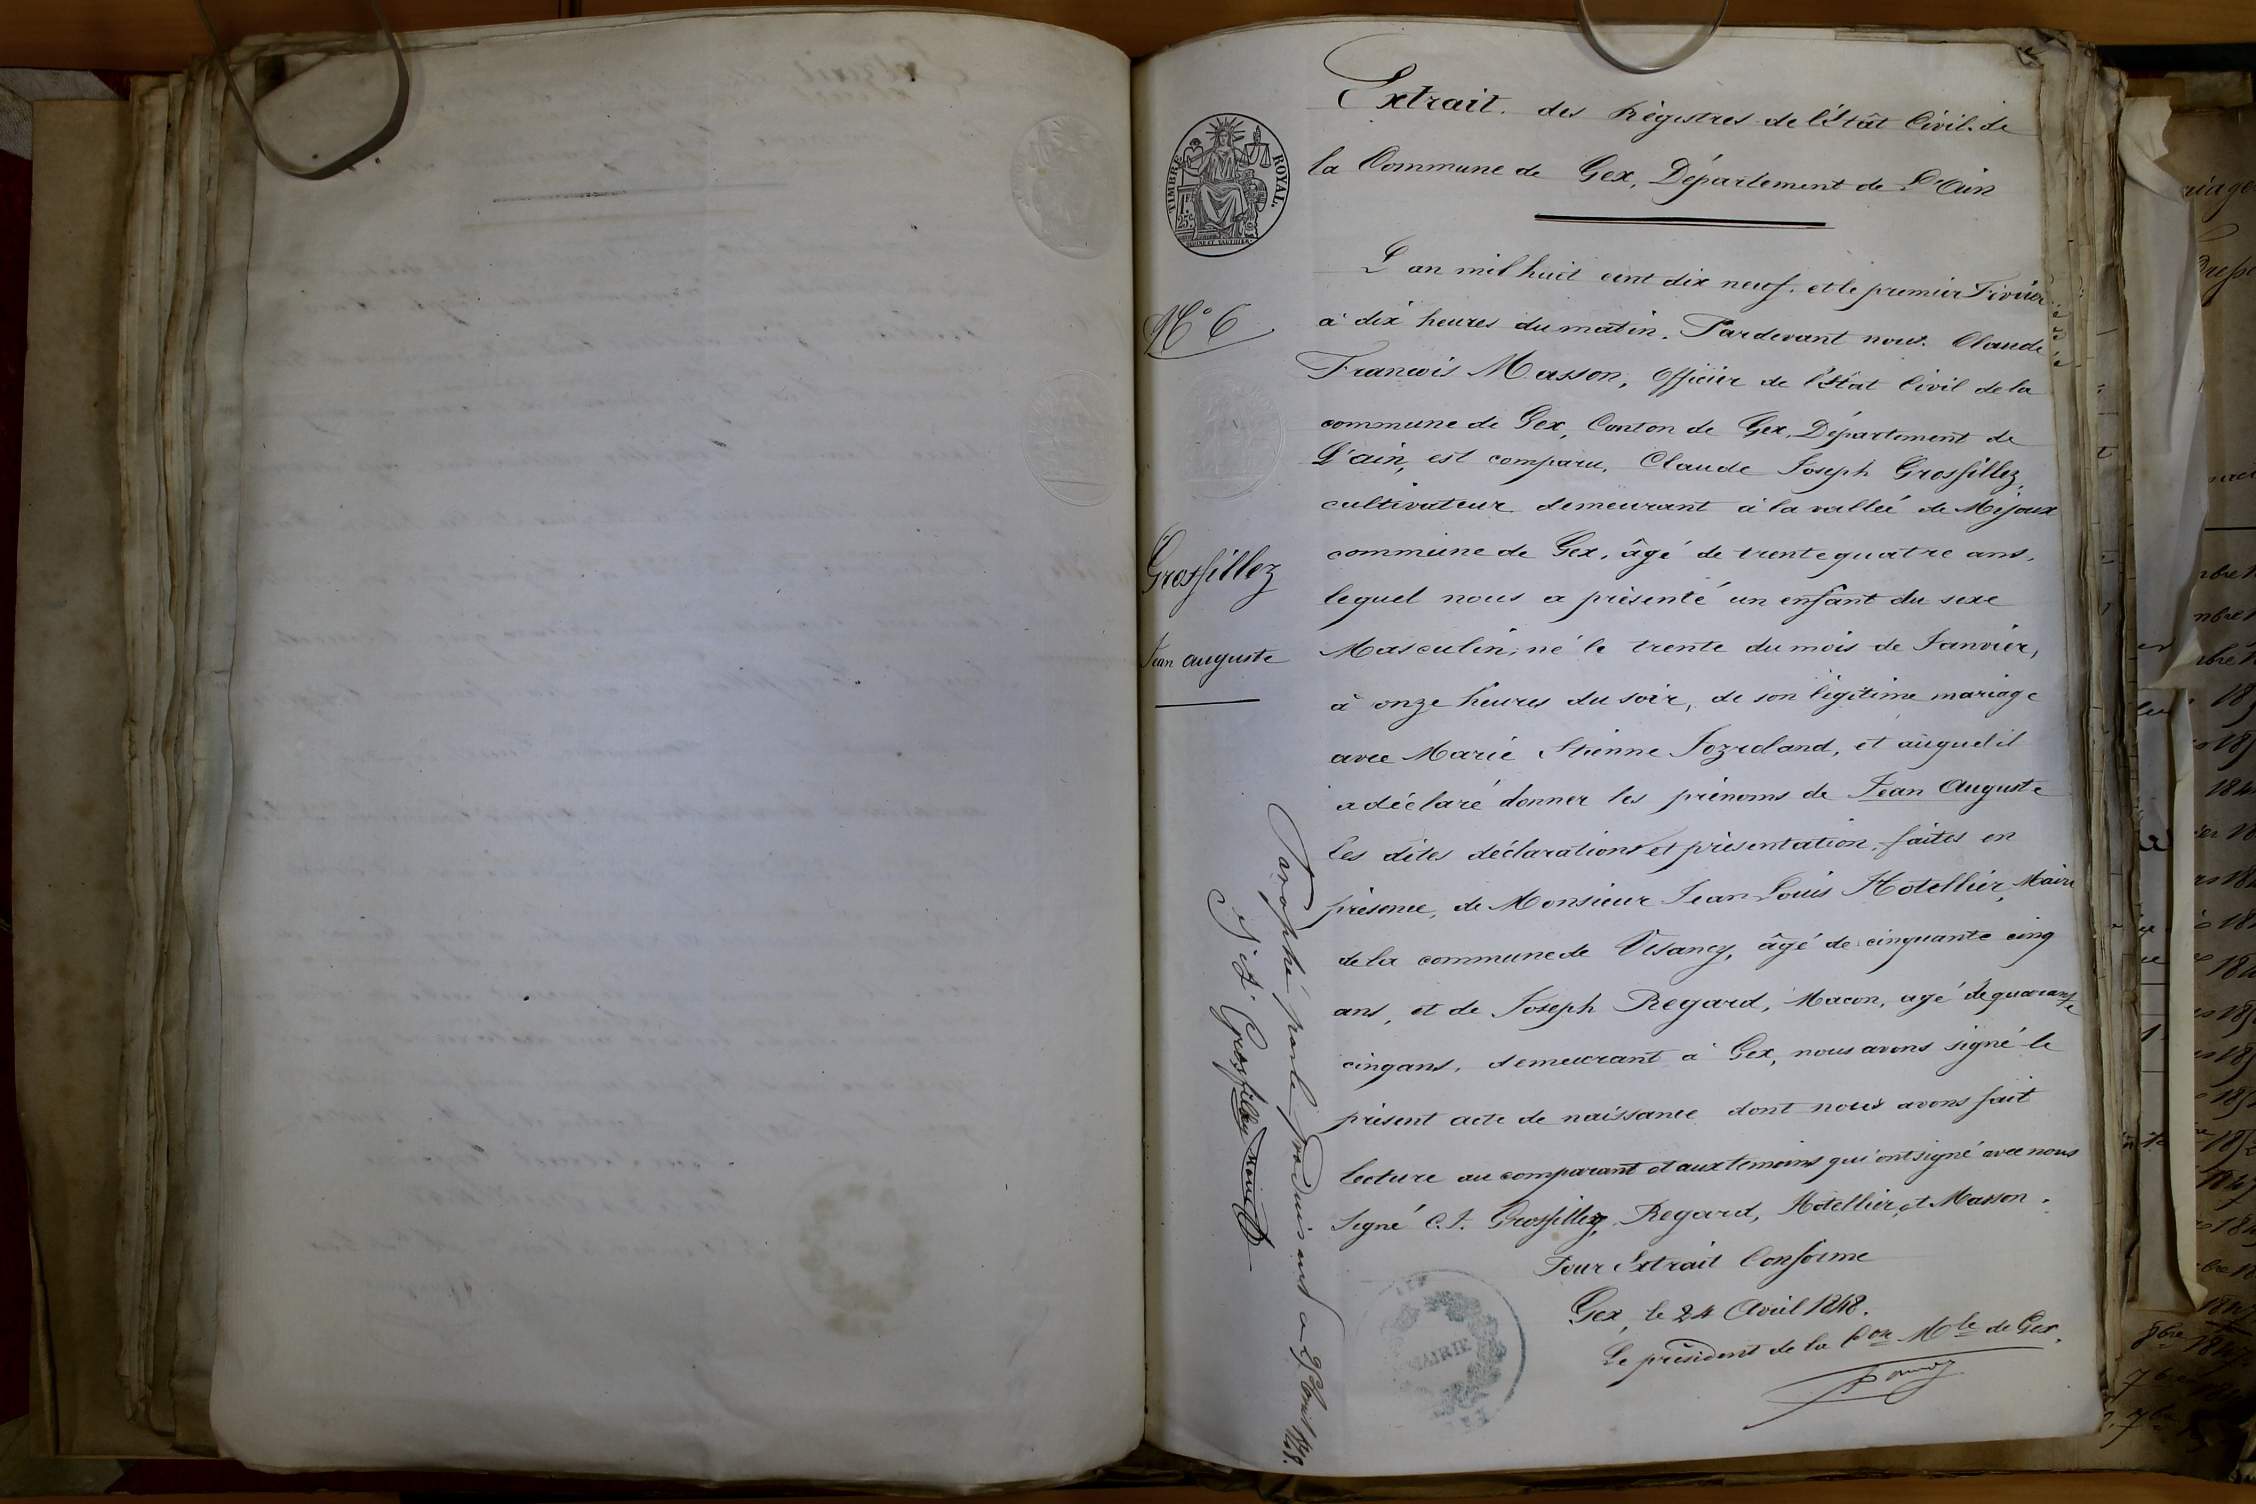 Extrait des Régistres de l'Etât Civil de
la Commune de Gex, Département de L'Ain
TIMBRE ROYAL.
1F 25c
N° 6
L'an mil huit cent dix neuf, et le premier Février
à dix heures du matin. Pardevant nous Claude
Francois Masson, Officier de l'Etat Civil de la
commune de Gex, Canton de Gex, Département de
L'ain, est comparu, Claude Joseph Grosfillez,
cultivateur demeurant à la vallée de Mijoux
commune de Gex, âgé de trente quatre ans,
lequel nous a présenté un enfant du sexe
Masculin, né le trente du mois de Janvier,
à onze heures du soir, de son légitime mariage
avec Marie Etienne Jozroland, et auquel il
a déclaré donner les prénoms de Jean Auguste
les dites déclarations et présentation, faites en
présence, de Monsieur Jean Louis Hotellier, Maire
de la commune de Vesancy, âgé de cinquante cinq
ans, et de Joseph Regard, Macon, agé de quarante
cinq ans, demeurant à Gex, nous avons signé le
présent acte de naissance dont nous avons fait
lecture au comparant et aux temoins qui ont signé avec nous
Signé C. J. Grosfillez, Regard, Hotellier, et Masson.
Pour Extrait Conforme
Gex, le 24 Avril 1848.
Le président de la Con Mle de Gex.
MAIRIE
Grosfillez
Jean auguste
Paraphé par le produisant
J. A. Grosfillez